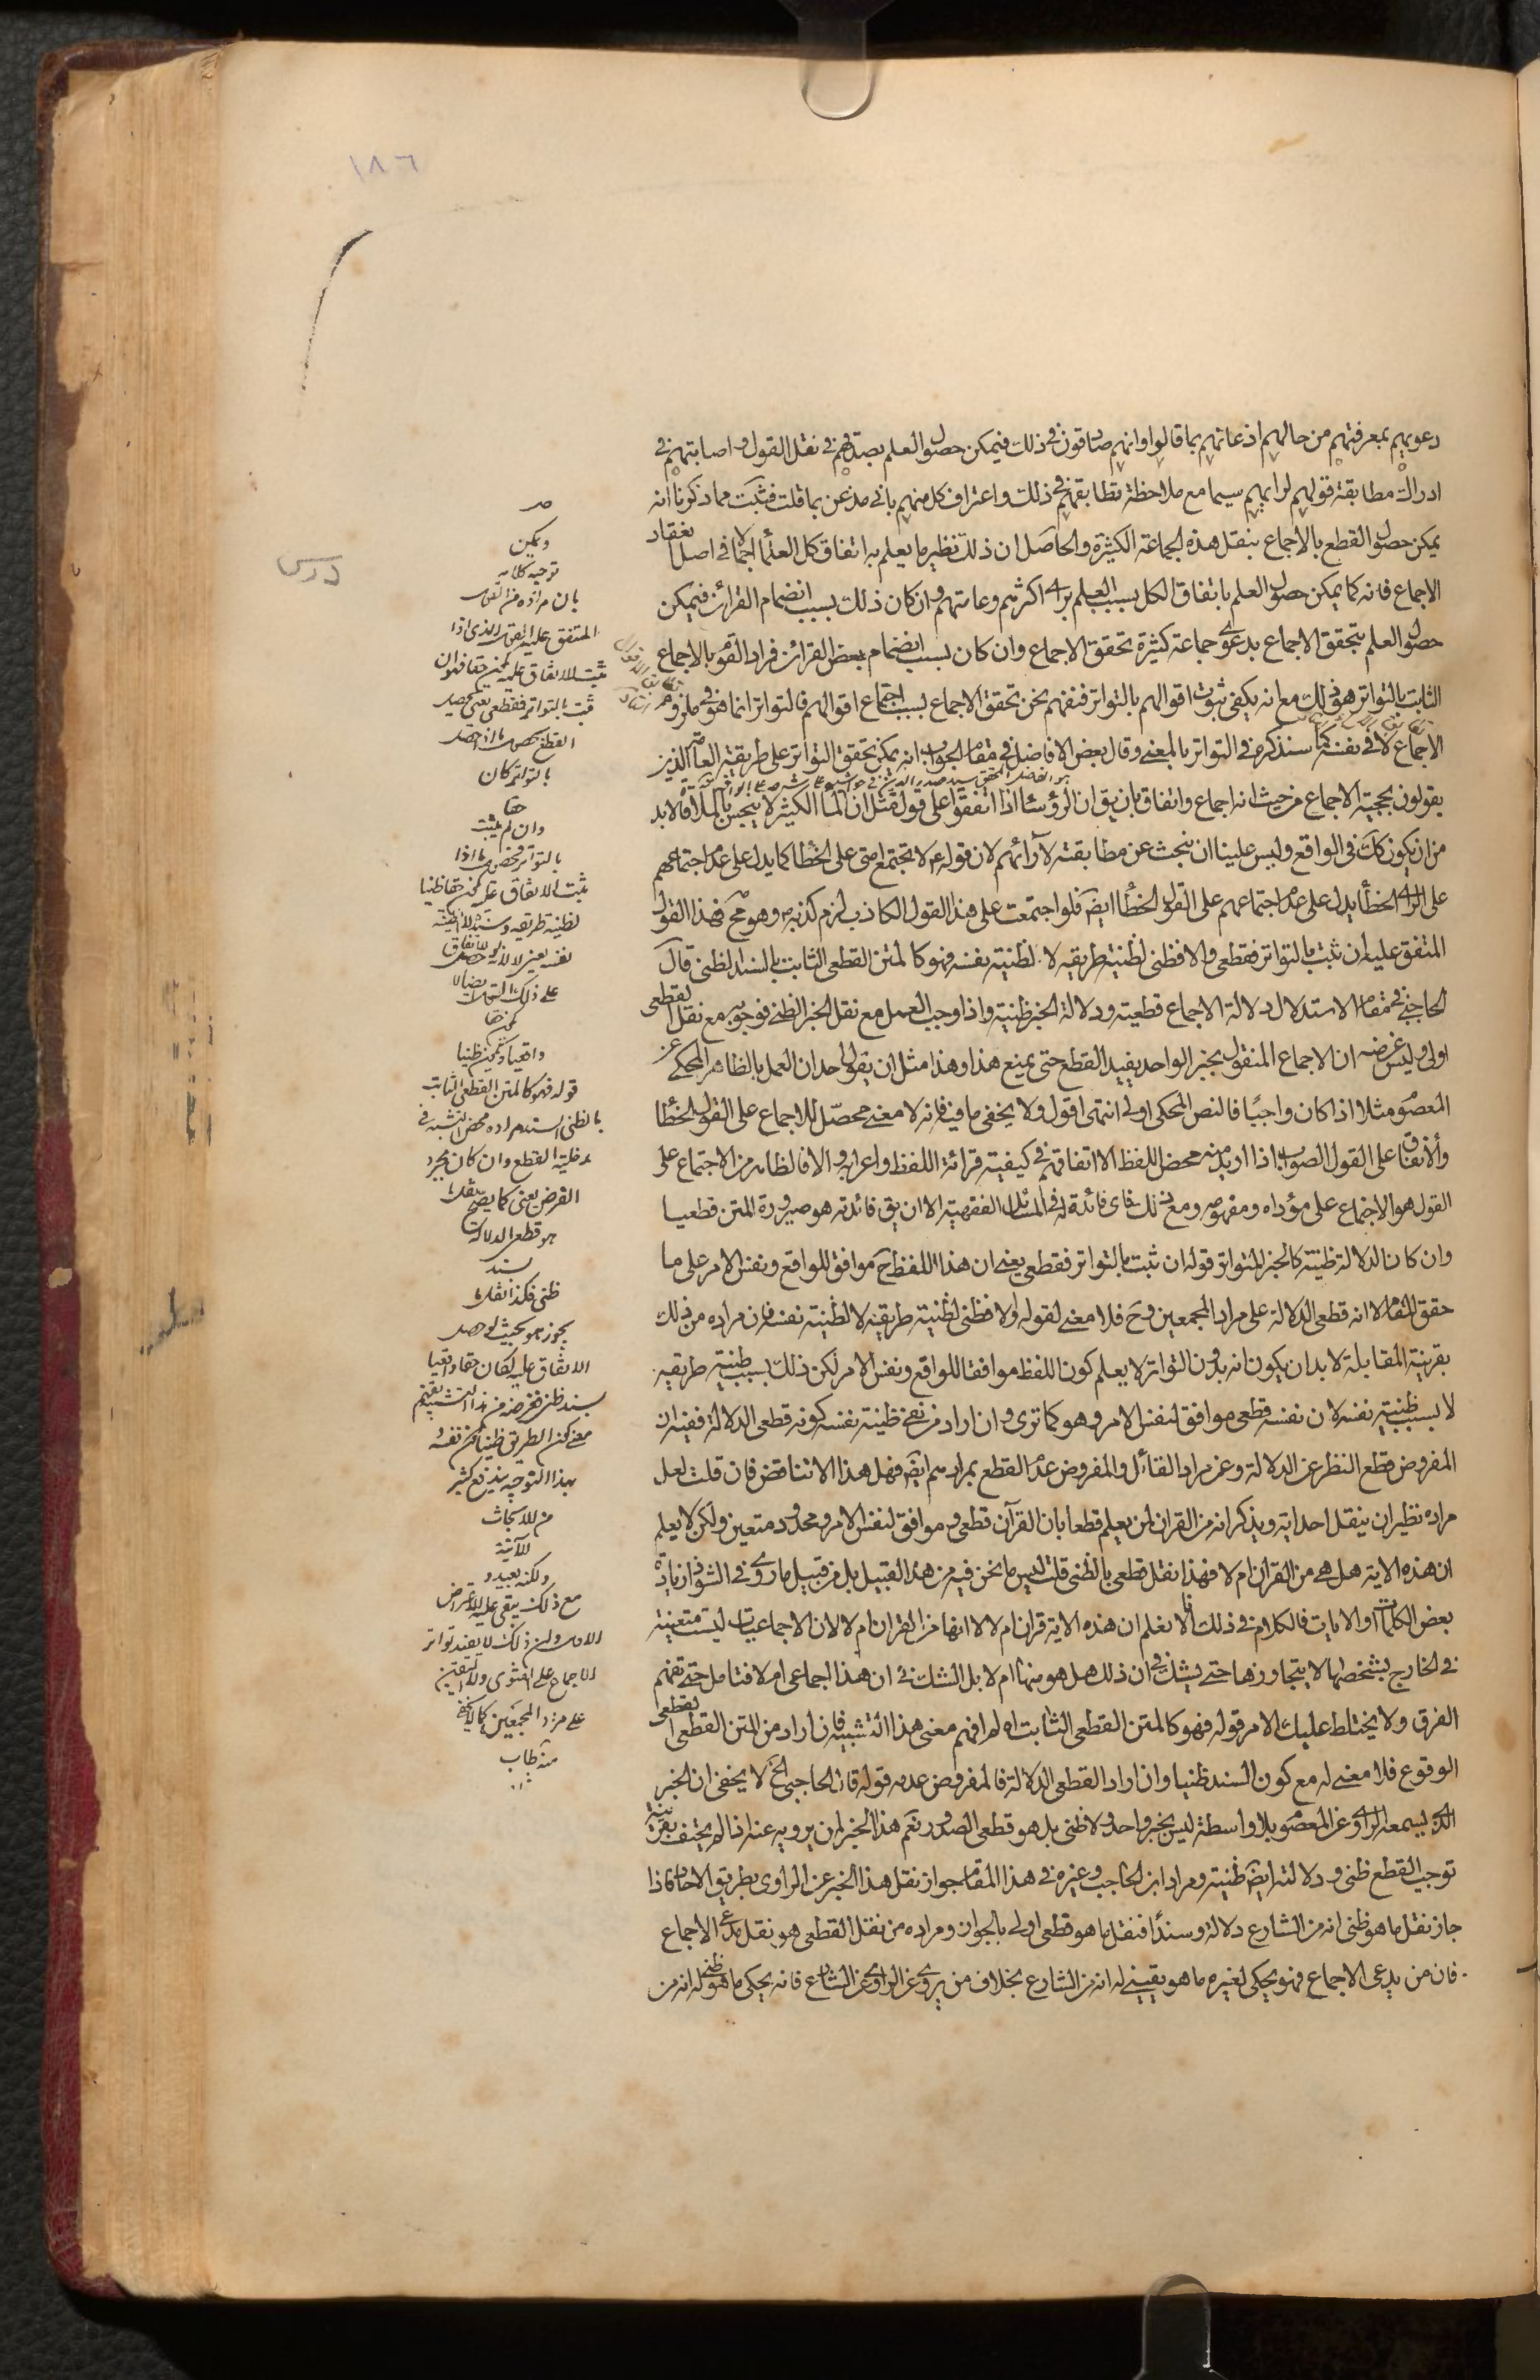 ١٨٦
دعويهم بمعرفتهم من حالهم اذعانهم بما قالوا وانهم صادقون في ذلك فيمكن حصول العلم بصدقهم في نقل القول و اصابتهم في
ادراك مطابقة قولهم لرايهم سيما مع ملاحظة تطابقهم في ذلك واعتراف كل منهم باني مذعن بما قلت فثبت مما ذكرنا انه
يمكن حصول القطع بالاجماع بنقل هذه الجماعة الكثيرة والحاصل ان ذلك نظير ما يعلم به اتفاق كل العلماء اجمالا في اصل انعقاد
الاجماع فانه كما يمكن حصول العلم باتفاق الكل بسبب العلم براي اكثرهم وعامتهم وان كان ذلك بسبب انضمام القرائن فيمكن
حصول العلم بتحقق الاجماع بدعوى جماعة كثيرة تحقق الاجماع وان كان بسبب انضمام بعض القرائن فراد القوم بالاجماع
الثابت بالتواتر هو ذلك مع انه يكفي ثبوت اقوالهم بالتواتر فنفهم نحن تحقق الاجماع بسبب اجتماع اقوالهم فالتواتر انما هو في ملزوم
الاجماع لا في نفسه كما سنذكره في التواتر بالمعنى وقال بعض الافاضل في مقام الجواب انه يمكن تحقق التواتر على طريقة العامة الذين
يقولون بحجية الاجماع من حيث انه اجماع واتفاق بان يق ان الرؤساء اذا اتفقوا على قول مثل ان الماء الكثير لا ينجس بالملاقاة لا بد
من ان يكون كك في الواقع وليس علينا ان نبحث عن مطابقته لآرائهم لان قوله ص لا تجتمع امتي على الخطاء كما يدل على عدم اجتماعهم
على الراي الخطاء يدل على عدم اجتماعهم على القول الخطاء ايض فلو اجتمعت على هذا القول الكاذب لزم كذبه ص وهو مح فهذا القول
المتفق عليه ان ثبت بالتواتر فقطعي والا فظني لظنية طريقه لا لظنية نفسه فهو كالمتن القطعي الثابت بالسند الظني قال
الحاجبي في مقام الاستدلال دلالة الاجماع قطعية ودلالة الخبر ظنية واذا وجب العمل مع نقل الخبر الظني فوجوبه مع نقل القطعي
اولى وليس غرضه ان الاجماع المنقول بخبر الواحد يفيد القطع حتى يمنع هذا وهذا مثل ان يقول احد ان العمل بالظاهر المحكي عن
المعصوم مثلا اذا كان واجبا فالنص المحكي اولى انتهى اقول ولا يخفى ما فيه فانه لا معنى محصّل للاجماع على القول الخطاء
والاتفاق على القول الصواب اذا اريد منه محض اللفظ الا اتفاقهم في كيفية قرائة اللفظ واعرابه والا فالظاهر من الاجتماع على
القول هو الاجتماع على مؤداه ومفهومه ومع ذلك فاى فائدة له في المسائل الفقهية الا ان يق فائدته هو صيرورة المتن قطعيا
وان كان الدلالة ظنية كالخبر المتواتر قوله ان ثبت بالتواتر فقطعي يعني ان هذا اللفظ ح موافق للواقع ونفس الامر على ما
حقق المقام لا انه قطعي الدلالة على مراد المجمعين و ح فلا معنى لقوله والا فظني لظنية طريقه لا لظنية نفسه فان مراده من ذلك
بقرينة المقابلة لا بد ان يكون انه بدون التواتر لا يعلم كون اللفظ موافقا للواقع ونفس الامر لكن ذلك بسبب ظنية طريقه
لا بسبب ظنية نفسه لان نفسه قطعي موافق لنفس الامر وهو كما ترى وان اراد من نفي ظنية نفسه كونه قطعي الدلالة ففيه ان
المفروض قطع النظر عن الدلالة وعن مراد القائل والمفروض عدم القطع بمرادهم ايض فهل هذا الا تناقض فان قلت لعل
مراده نظير ان ينقل احد اية ويذكر انه من القران لمن يعلم قطعا بان القرآن قطعي و موافق لنفس الامر ومحدود متعين ولكن لا يعلم
ان هذه الاية هل هي من القران ام لا فهذا نقل قطعي بالظني قلت ليس ما نحن فيه من هذا القبيل بل من قبيل ما روي في الشواذ زيادة
بعض الكلمات او الايات فالكلام في ذلك انا لا نعلم ان هذه الاية قران ام لا لا انها من القران ام لا لان الاجماعيات ليست متعينة
في الخارج بشخصها لا يتجاوزها حتى يشك في ان ذلك هل هو منها ام لا بل الشك في ان هذا اجماعي ام لا فتامل حتى تفهم
الفرق ولا يختلط عليك الامر قوله فهو كالمتن القطعي الثابت اه لم افهم معنى هذا التشبيه فان اراد من المتن القطعي القطعي
الوقوع فلا معنى له مع كون السند ظنيا وان اراد القطعي الدلالة فالمفروض عدمه قوله قال الحاجبي الخ لا يخفى ان الخبر
الذي يسمعه الراوي عن المعصوم بلا واسطة ليس بخبر واحد ولا ظني بل هو قطعي الصدور نعم هذا الخبر لمن يرويه عنه اذا لم يحتف بقرينة
توجب القطع ظني ودلالته ايض ظنية ومراد ابن الحاجب وغيره في هذا المقام جواز نقل هذا الخبر عن الراوي بطريق الاحاد فاذا
جاز نقل ما هو ظني انه من الشارع دلالة وسندا فنقل ما هو قطعي اولى بالجواز ومراده من نقل القطعي هو نقل مدعي الاجماع
فان من يدعي الاجماع فهو يحكي لغيره ما هو يقيني له انه من الشارع بخلاف من يروي عن الراوي عن الشارع فانه يحكي ما هو ظني له انه من
درس
ويمكن
توجيه كلامه
بان مراده من القول
المتفق عليه القول الذي اذا
ثبت الاتفاق عليه يكون حقا فان
ثبت بالتواتر فقطعي يعني يحصل
القطع
بالتواتر كان
حقا
وان لم يثبت
بالتواتر
ثبت الاتفاق عليه يكون حقا ظنيا
لظنية طريقه وسنده لا لظنية
نفسه
على ذلك
يكون حقا
واقعيا ويكون ظنيا
قوله فهو كالمتن القطعي الثابت
بالظني السند مراده محض التشبيه في
مدخلية القطع وان كان مجرد
الفرض يعني كما يصح نقل ما
هو قطعي الدلالة
بسند
ظني فكذا نقل ما
يجوز هو بحيث لو حصل
الاتفاق عليه لكان حقا واقعيا
بسند ظني
معنى كون الطريق ظنيا
بهذا التوجيه يندفع كثير
من الابحاث
الآتية
ولكنه بعيد و
مع ذلك يبقى عليه الاعتراض
الاول وان ذلك لا يفيد تواتر
الاجماع على الفتوى واليقين
على مراد المجمعين كما لا يخفى
منه طاب